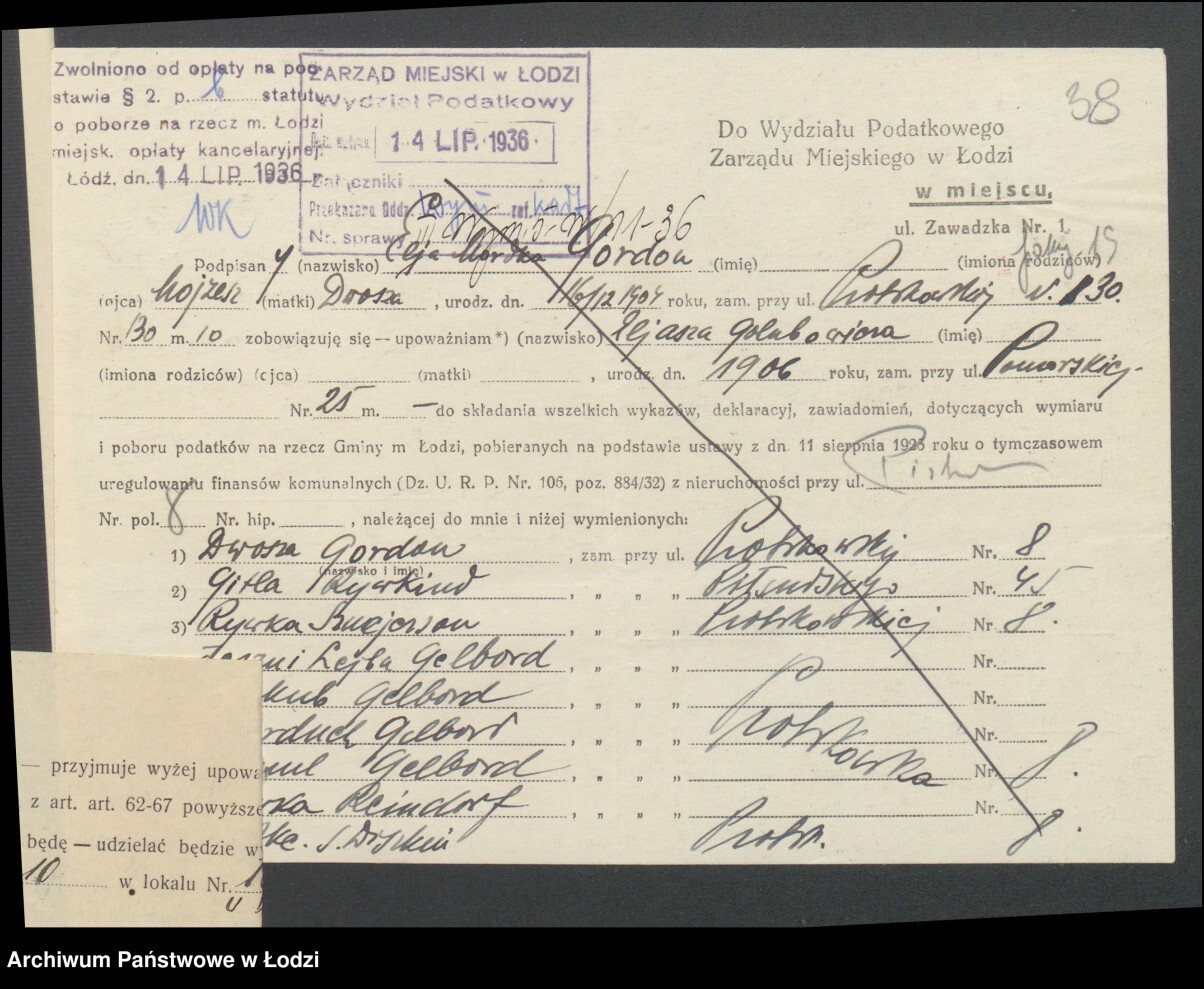 Zwolniono od opłaty na pod-
stawie § 2. p. b statutu
o poborze na rzecz m. Łodzi
miejsk. opłaty kancelaryjnej.
Łódź, dn. 14 LIP. 1936 r.
WK
ZARZĄD MIEJSKI w ŁODZI
Wydział Podatkowy
14 LIP. 1936
Załączniki
Przekazano Oddz. ref.
Nr. sprawy
1-36
38
Do Wydziału Podatkowego
Zarządu Miejskiego w Łodzi
w miejscu,
ul. Zawadzka Nr. 1
Podpisan y (nazwisko) Eja Mordka Gordon (imię) (imiona rodziców)
(ojca) Mojżesz (matki) Dwosza, urodz. dn. 16/12 1904 roku, zam. przy ul. Piotrkowskiej N. 130.
Nr. 130 m. 10 zobowiązuję się — upoważniam *) (nazwisko) Eljasza Gołubowicza (imię)
(imiona rodziców) (ojca) (matki) , urodz. dn. 1906 roku, zam. przy ul. Pomorskiej
Nr. 25 m. — do składania wszelkich wykazów, deklaracyj, zawiadomień, dotyczących wymiaru
i poboru podatków na rzecz Gminy m Łodzi, pobieranych na podstawie ustawy z dn. 11 sierpnia 1923 roku o tymczasowem
uregulowaniu finansów komunalnych (Dz. U. R. P. Nr. 106, poz. 884/32) z nieruchomości przy ul. Piotrk
Nr. pol. 8 Nr. hip. , należącej do mnie i niżej wymienionych:
1) Dwosza Gordon , zam. przy ul. Piotrkowskiej Nr. 8
(nazwisko i imię)
2) Gitla Rywkind , „ „ „ Piłsudskiego Nr. 45
3) Rywka , „ „ „ Piotrkowskiej Nr. 8.
Lejba Gelbord , „ „ „ Nr.
kub Gelbord , „ „ „ Nr.
rduch Gelbord , „ „ „ Piotrkowska Nr.
Gelbord , „ „ „ Nr. 8.
rka Reindorf , „ „ „ Nr.
Piotrk. 8.
— przyjmuje wyżej upowa
z art. art. 62-67 powyższe
będę — udzielać będzie w
10 w lokalu Nr.
Archiwum Państwowe w Łodzi